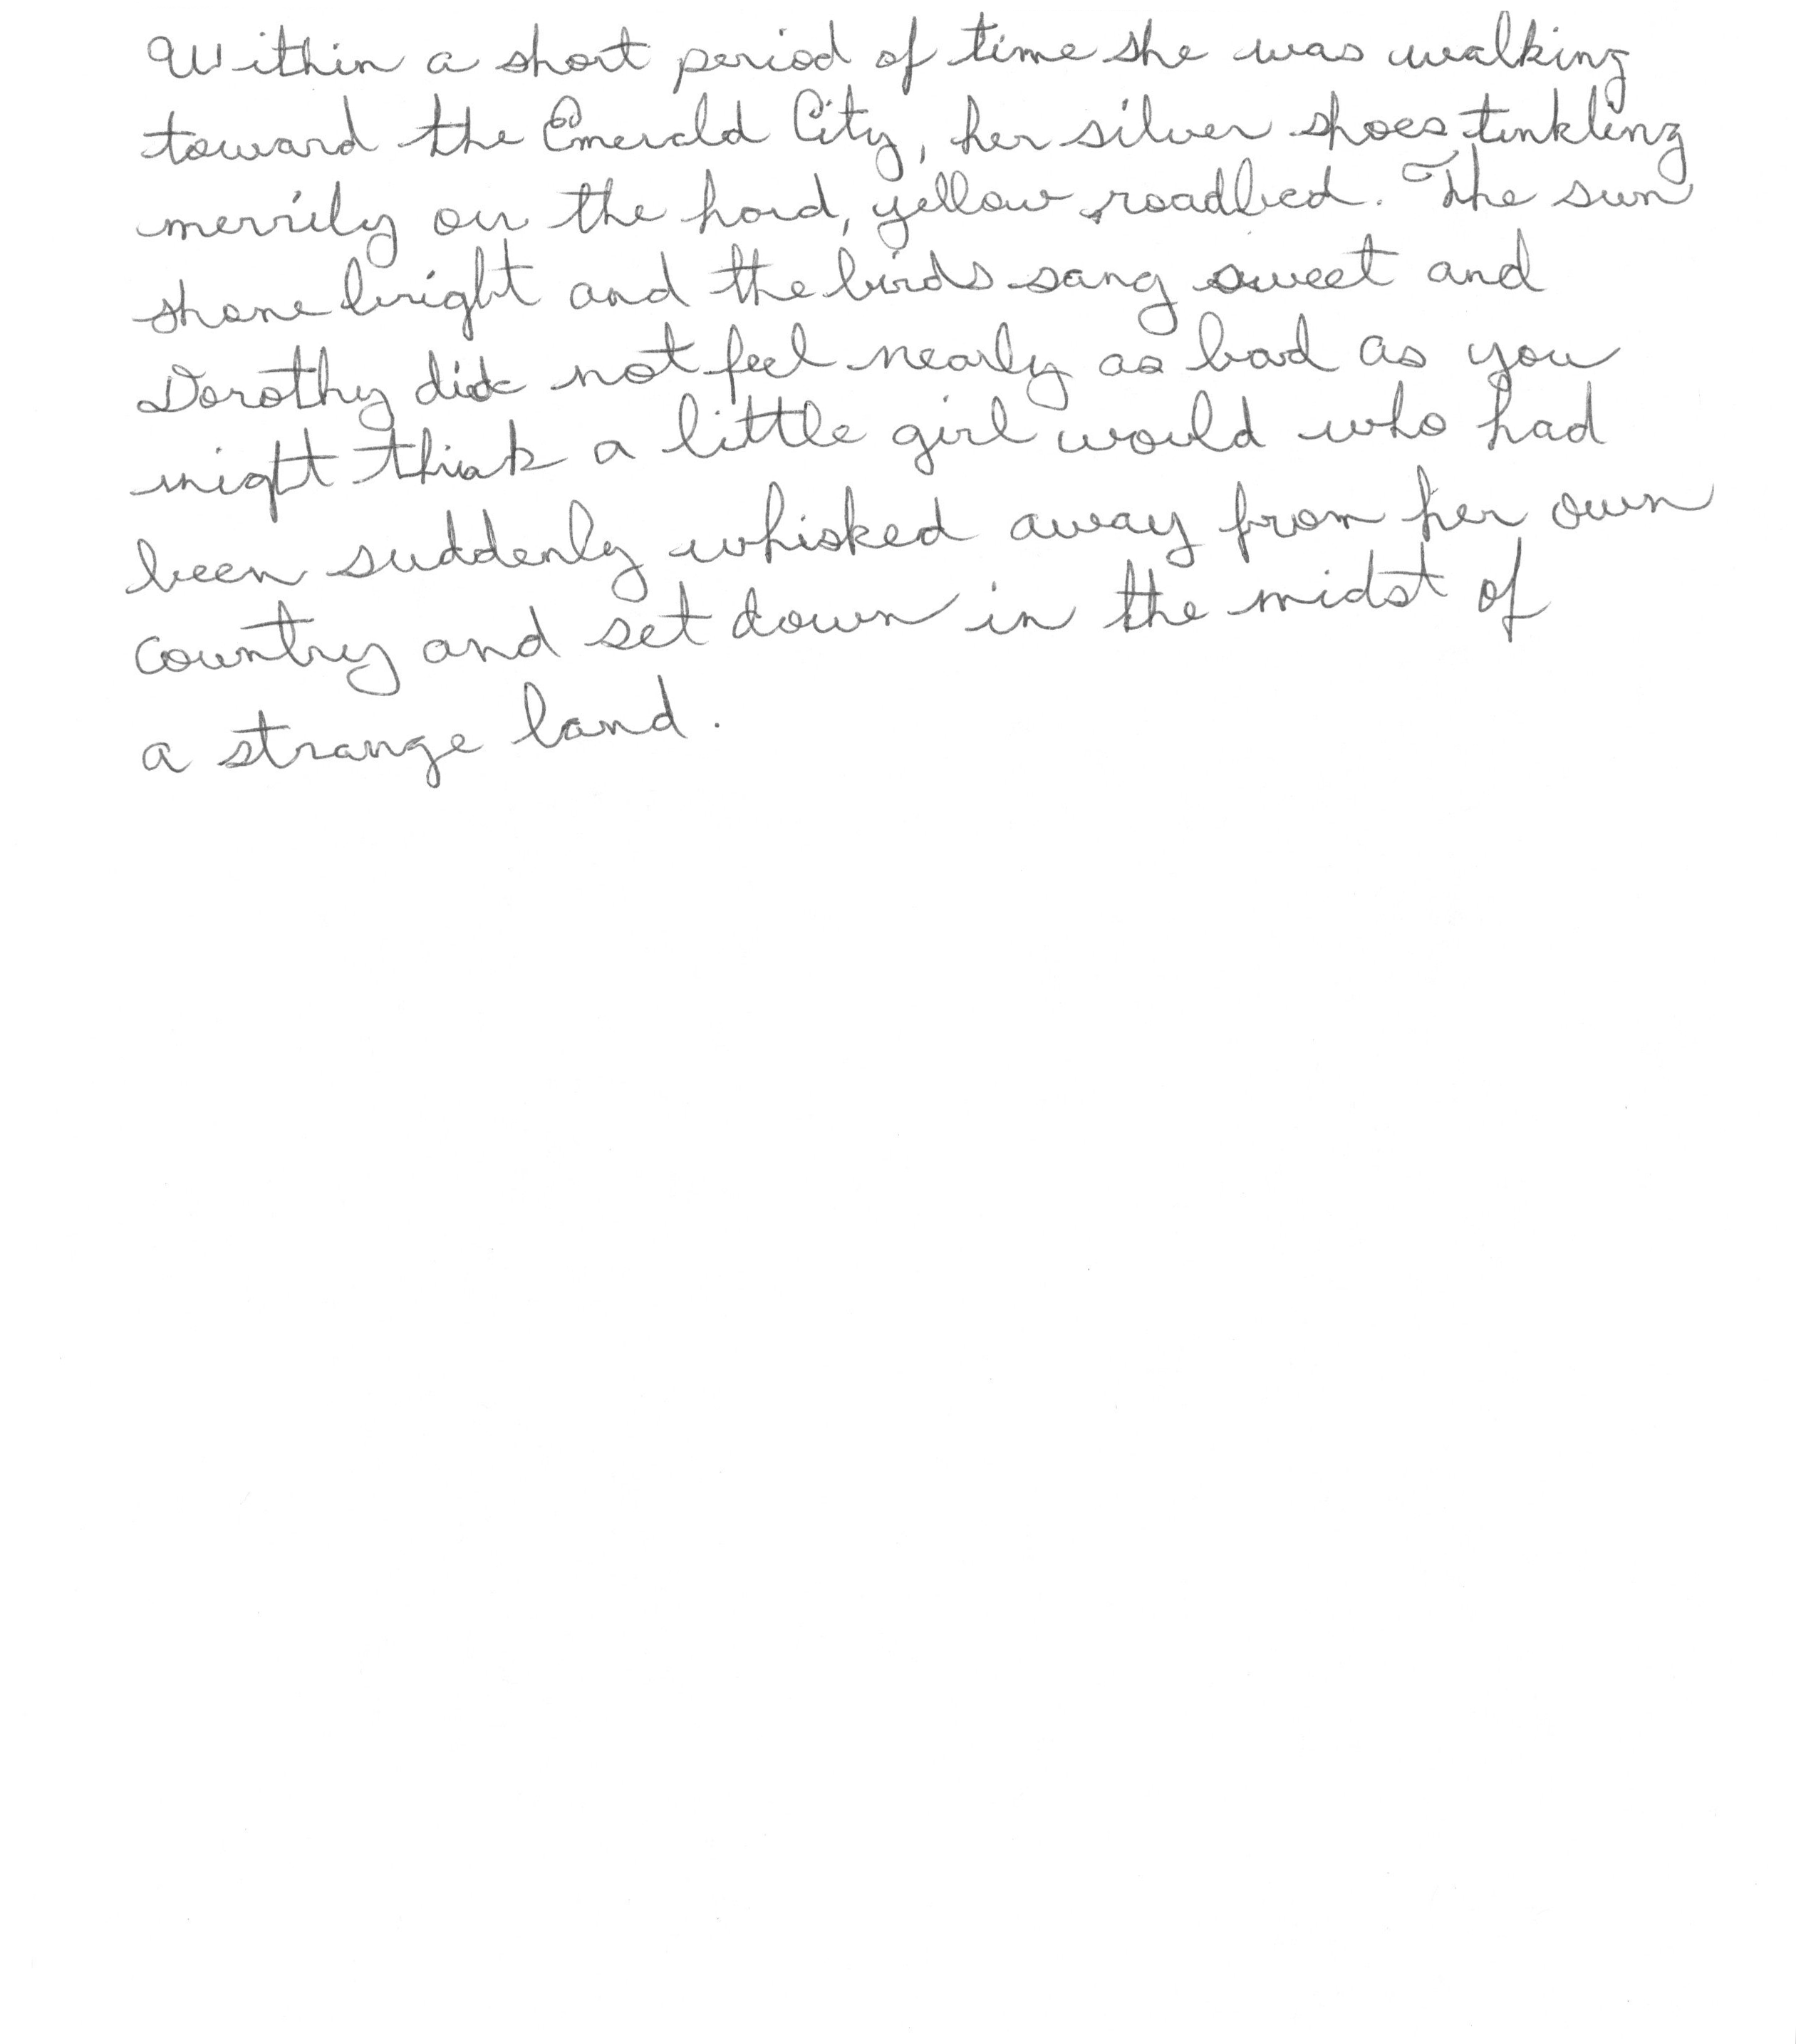 Within a short period of time she was walking
toward the Emerald City, her silver shoes tinkling
merrily on the hard, yellow roadbed. The sun
shone bright and the birds sang sweet and
Dorothy did not feel nearly as bad as you
might think a little girl would who had
been suddenly whisked away from her own
country and set down in the midst of
a strange land.